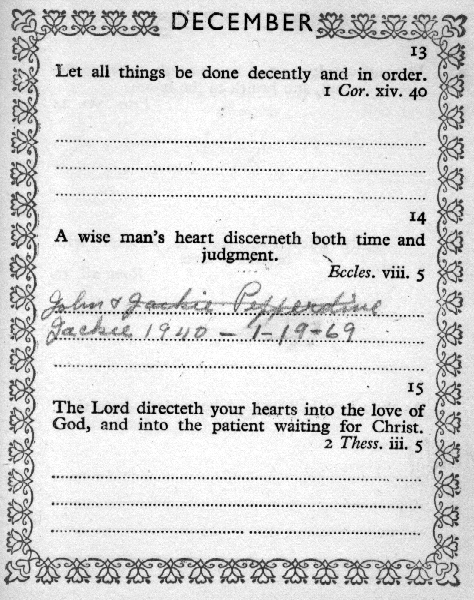 DECEMBER
13
Let all things be done decently and in order.
1 Cor. xiv. 40
14
A wise man's heart discerneth both time and
judgment.
Eccles. viii. 5
John & Jackie Pepperdine
Jackie 1940 – 1-19-69
15
The Lord directeth your hearts into the love of
God, and into the patient waiting for Christ.
2 Thess. iii. 5